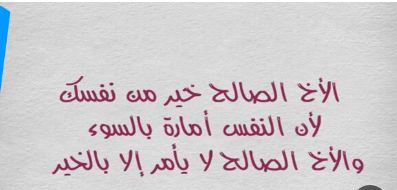 الأخ الصالح خير من نفسك
لأن النفس أمارة بالسوء
والأخ الصالح لا يأمر إلا بالخير